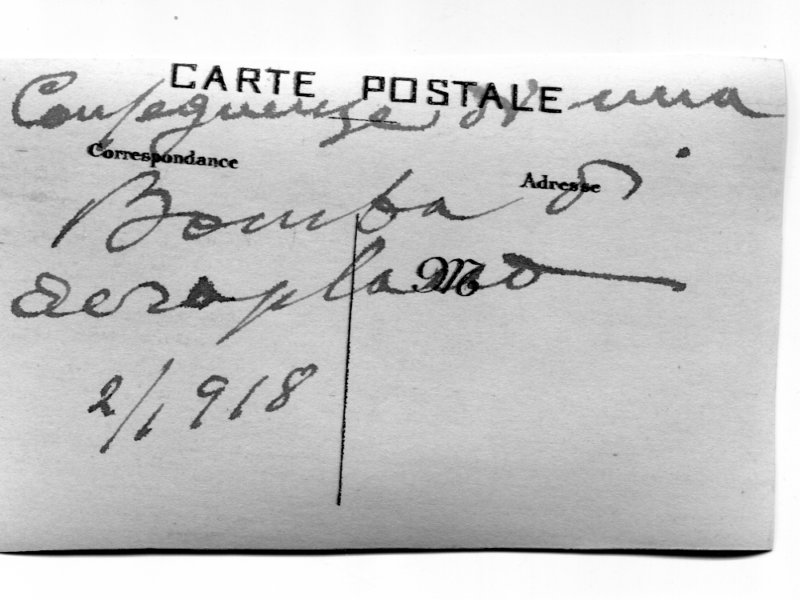 CARTE POSTALE
Conseguenze di una
Correspondance
Adresse
Bomba di
aeroplano
M
2/1918